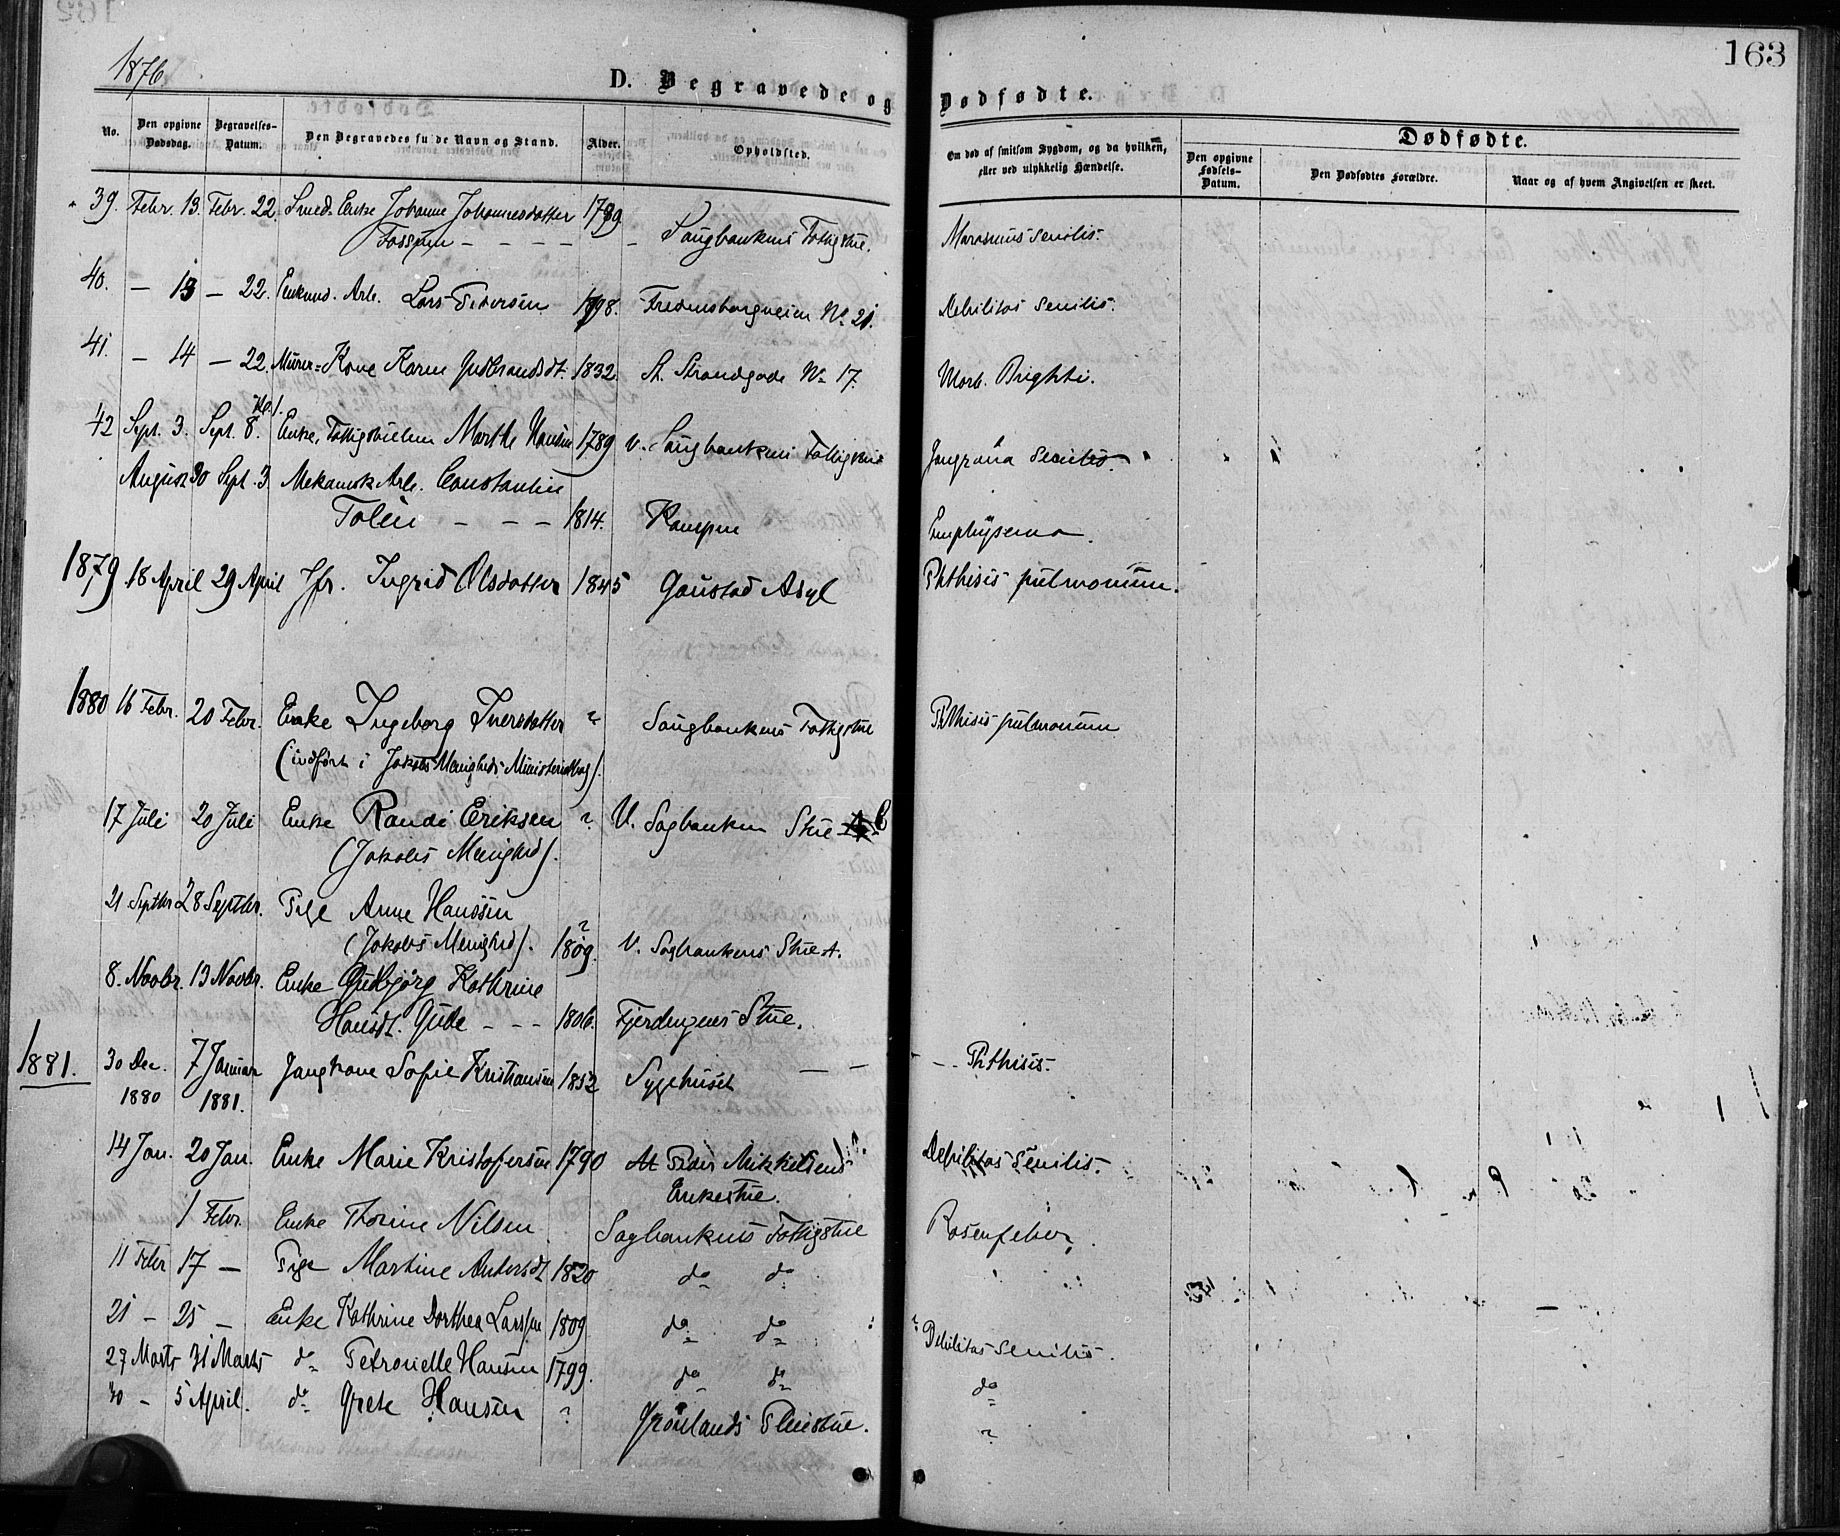 163
1876
D. Begravede og Dødfødte.
No. Den opgivne Dødsdag. Begravelses-Datum. Den Begravedes fulde Navn og Stand. Alder. Opholdsted. Om død af smitsom Sygdom, og da hvilken, eller ved ulykkelig Hændelse. Dødfødte.
Den opgivne Fødsels-Datum. Den Dødfødtes Forældre. Naar og af hvem Angivelsen er skeet.
39. Febr. 13. Febr. 22. Smed Enke Johanne Johannesdatter 1789
Fossum - - - - - Saugbankens Fattigstue. Marasmus senilis.
40. — 13 — 22. Enkemd. Arb. Lars Pedersen 1798. Fredensborgveien No 21. Debilitas senilis.
41. — 14 — 22. Murer- Kone Karen Gudbrandsdt. 1832. St. Strandgade No 17. Morb. Brighti.
42 Sept. 3. Sept. 8. Enke, Marthe Hansen 1789 V. Saugbankens Fattigstue senilis.
August 30 Sept. 3. Mekanisk Arb. Constantin
Tolin - - - 1814. Kampen Emphysema.
1879 18 April 29 April Jfr. Ingrid Olsdatter 1845 Gaustad Asyl Phthisis pulmonum.
1880 16 Febr. 20 Febr. Enke Ingeborg Iversdatter ? Saugbankens Fattigstue Phthisis pulmonum
(indført i Jakobs Menigheds Ministerialbog).
17 Juli 20 Juli Enke Randi Eriksen ? V. Sagbanken Stue B
(Jakobs Menighed).
21 Septbr 28 Septbr. Pige Anne Hanssen
(Jakobs Menighed). 1809. ? V. Sagbankens Stue A.
8. Novbr. 13 Novbr. Enke Gudbjørg Kathrine
Hansdt. Gude - - - 1806. Fjerdingens Stue.
1881. 30 Dec. 7 Januar Sofie Kristiansen 1852 Sygehuset — — - - Phthisis.
1880 1881.
14 Jan. 20 Jan. Enke Marie Kristofersen 1790 At Peder Mikkelsens Debilitas senilis.
Enkestue.
1 Febr. Enke Thorine Nilsen Sagbankens Fattigstue Rosenfeber.
11 Febr 17 — Pige Martine Andersdt. 1820 do do
21 — 25 — Enke Kathrine Dorthea Larssen 1809 do do ? Debilitas senilis.
27 Marts 31 Marts do Petronelle Hansen 1799. do do do
30 - 5 April. do Grete Hansen ? Grønlands Pleiestue. ?